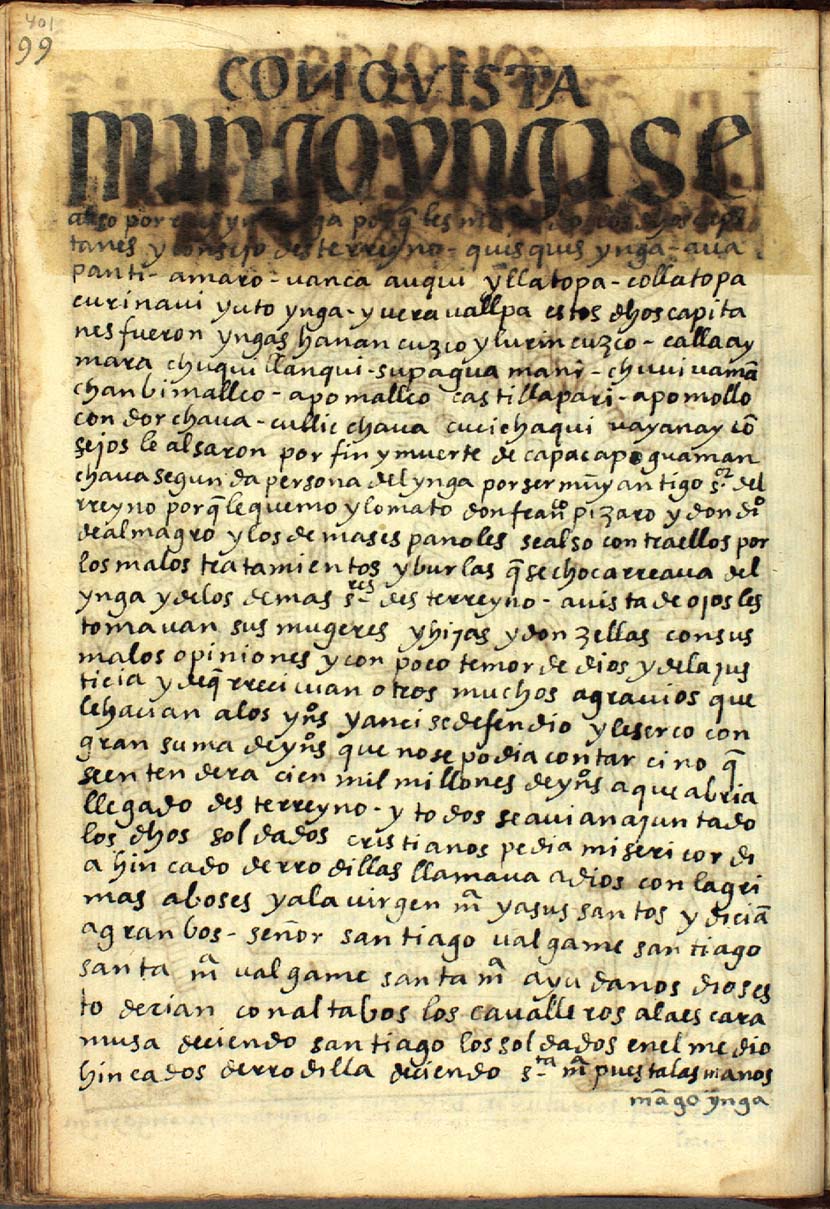 401
99
CONQVISTA
MANGOYNGASE
also por rrey ynga porq̃ les
tanes y consejo desterreyno - quisquis ynga - aua
panti - amaro - uanca auqui yllatopa - collatopa
curinaui yuto ynga - y uera uallpa estos dhos capita
nes fueron yngas hanan cuzco y lurin cuzco - callaay
mara chuqui llanqui - supa guamani - chuuiuamã
chanbimallco - apomallco castillapari - apomollo
condorchaua - cullic chaua cucichaqui uayanay cõ
sejos le alsaron por fin y muerte de capac apo guaman
chaua segunda persona del ynga por ser muy antigo s.or del
rreyno porq̃ le quemo y lo mato don fran.co pizaro y don di.o
de almagro y los demas espanoles se also contra ellos por
los malos tratamientos y burlas q̃ se chocarreaua del
ynga y de los demas s.res desterreyno - a uista de ojos les
tomauan sus mugeres y hijas y donzellas con sus
malos opiniones y con poco temor de dios y de la jus
ticia y deq̃ rreciuian otros muchos agrauios que
le hacian a los yn.os y anci se defendio y le serco con
gran suma de yn.os que no se podia contar cino q̃
se entendera cien mil millones de yn.os a que abria
llegado desterreyno - y todos se auian ajuntado
los dhos soldados cristianos pedia misericordi
a hincado de rrodillas llamaua a dios con lagri
mas a boses y a la uirgen m.a y a sus santos y diciã
a gran bos - señor santiago ualgame santiago
santa m.a ualgame santa m.a ayudanos dios es
to derian con alta bos los caualleros a la escara
musa deciendo santiago los soldados en el medio
hincados de rrodilla deciendo s.ta m.a puesta las manos
mãgo ynga